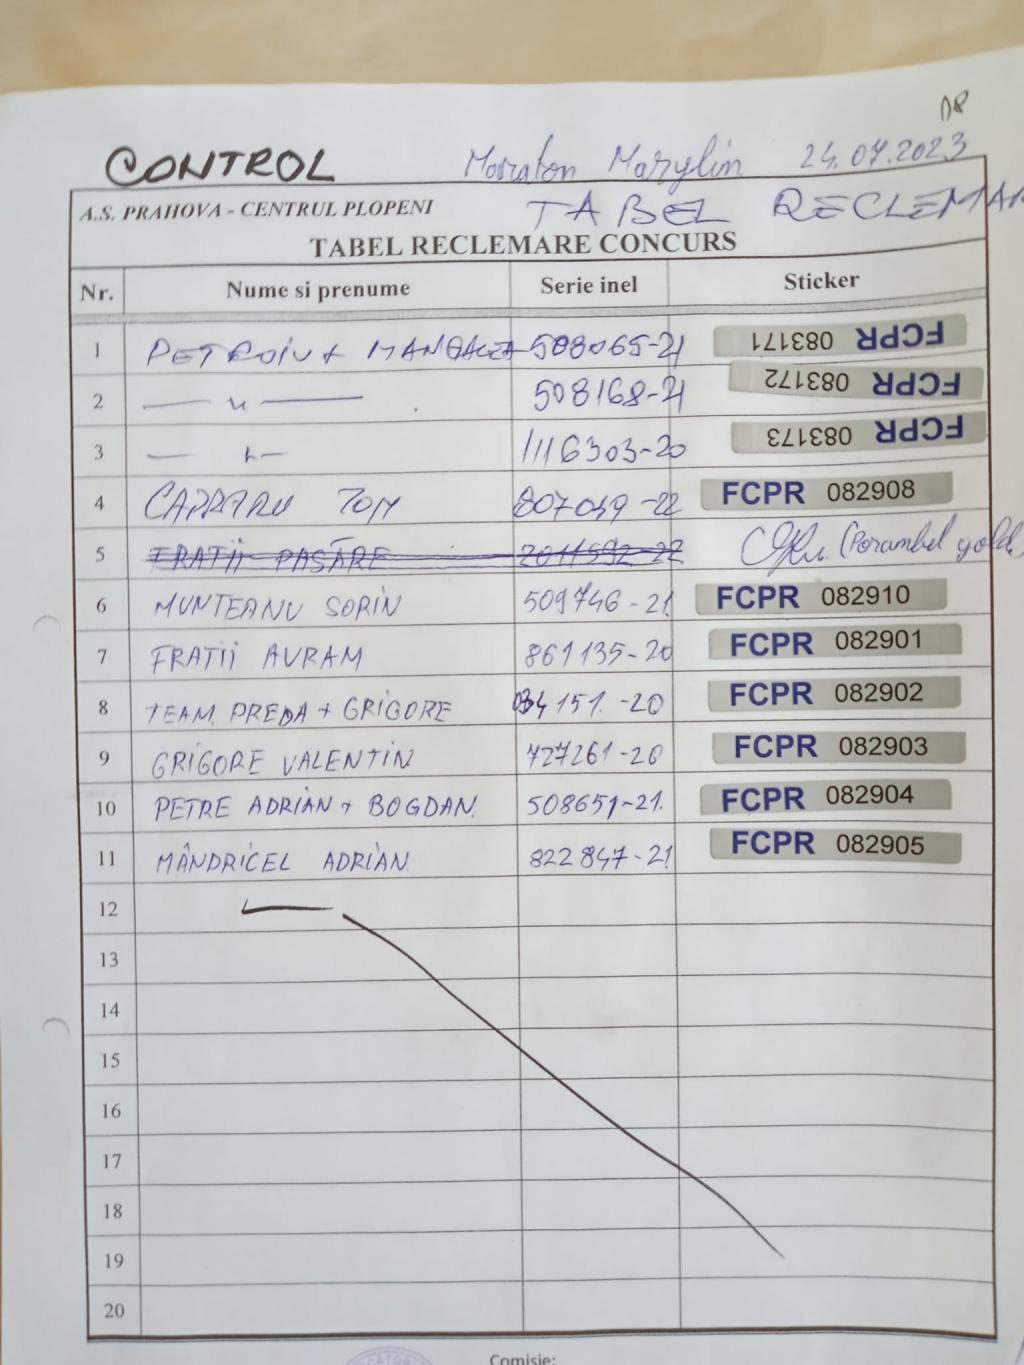 CONTROL Maraton Marylin 24.07.2023
A.S. PRAHOVA - CENTRUL PLOPENI TABEL RECLEMAR
TABEL RECLEMARE CONCURS
Nr. Nume si prenume Serie inel Sticker
1 PETROIU + MANGALEA 508065-21 FCPR 083171
2 — 〃 — 508168-21 FCPR 083172
3 — 〃 — 1116303-20 FCPR 083173
4 CAPRARU TOM 807049-22 FCPR 082908
5 FRATII PASĂRE 2011592-22 (Porumbel gold)
6 MUNTEANU SORIN 509746-21 FCPR 082910
7 FRATII AVRAM 861135-20 FCPR 082901
8 TEAM PREDA + GRIGORE 034151.-20 FCPR 082902
9 GRIGORE VALENTIN 427261-20 FCPR 082903
10 PETRE ADRIAN + BOGDAN. 508651-21. FCPR 082904
11 MÂNDRICEL ADRIAN. 822847-21 FCPR 082905
12
13
14
15
16
17
18
19
20
Comisie: